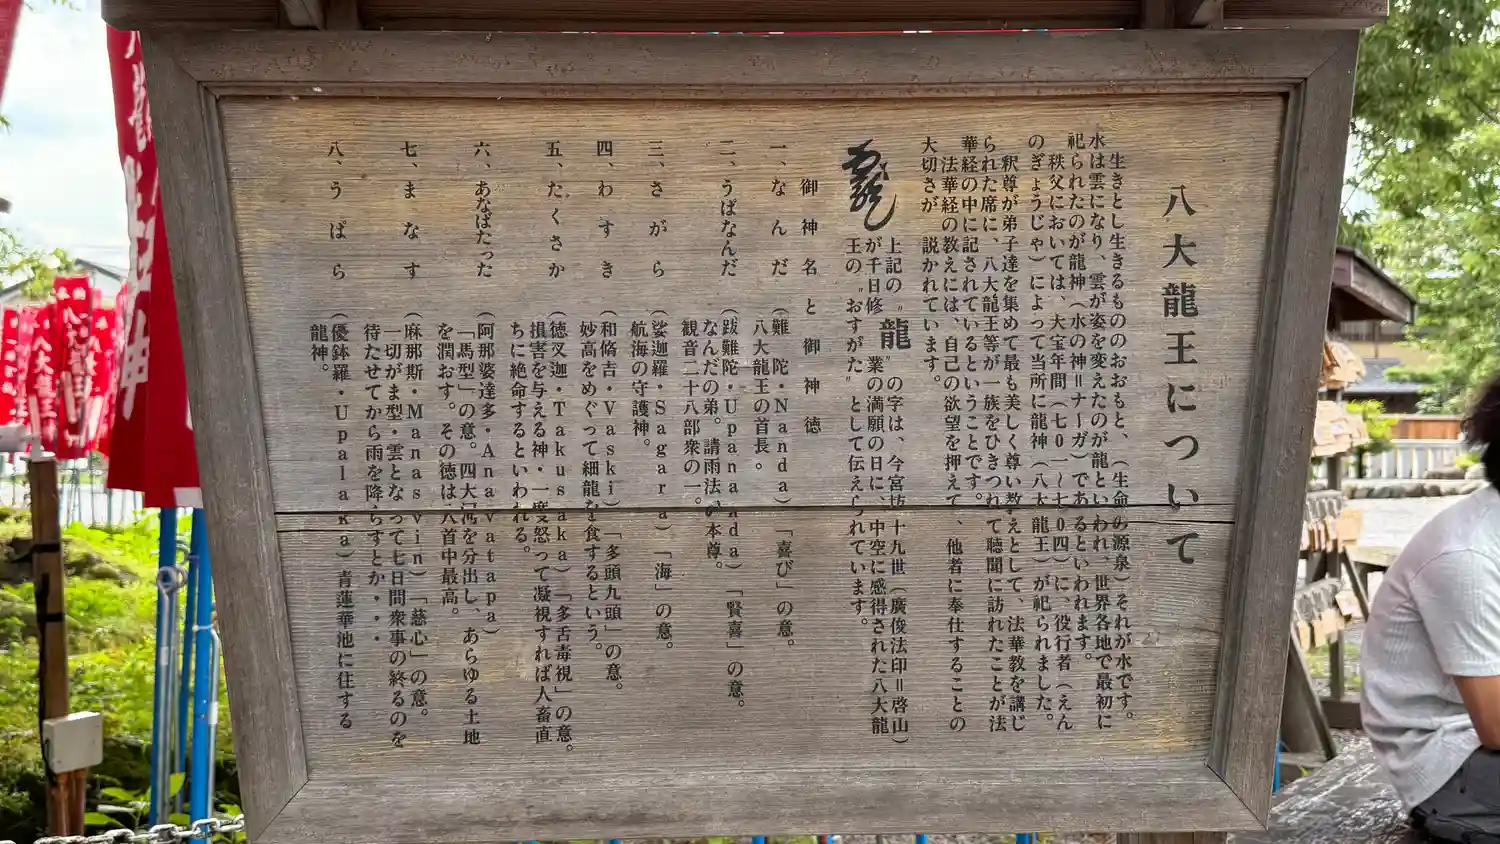 八大龍王について
生きとし生きるもののおおもと、（生命の源泉）それが水です。
水は雲になり、雲が姿を変えたのが龍といわれ、世界各地で最初に
祀られたのが龍神（水の神＝ナーガ）であるといわれます。
秩父においては、大宝年間（七〇一～七〇四）に、役行者（えん
のぎょうじゃ）によって当所に龍神（八大龍王）が祀られました。
釈尊が弟子達を集めて最も美しく尊い教えとして、法華教を講じ
られた席に、八大龍王等が一族をひきつれて聴聞に訪れたことが法
華経の中に記されているということです。
法華経の教えには、自己の欲望を押えて、他者に奉仕することの
大切さが　説かれています。
上記の〝龍〟の字は、今宮坊十九世（廣俊法印＝啓山）
が千日修業の満願の日に、中空に感得された八大龍
王の〝おすがた〟として伝えられています。
御神名と御神徳
一、なんだ（難陀・Nanda）「喜び」の意。
八大龍王の首長。
二、うばなんだ（跋難陀・Upananda）「賢喜」の意。
なんだの弟。請雨法の本尊。
観音二十八部衆の一。
三、さがら（娑迦羅・Sagara）「海」の意。
航海の守護神。
四、わすき（和脩吉・Vaski）「多頭九頭」の意。
妙高をめぐって細龍を食するという。
五、たくさか（徳叉迦・Takusaka）「多舌毒視」の意。
損害を与える神・一度怒って凝視すれば人畜直
ちに絶命するといわれる。
六、あなばたった（阿那婆達多・Anavatapa）
「馬型」の意。四大河を分出し、あらゆる土地
を潤おす。その徳は八首中最高。
七、まなす（麻那斯・Manasvin）「慈心」の意。
一切がま型・雲となって七日間衆事の終るのを
待たせてから雨を降らすとか・・・
八、うぱら（優鉢羅・Upalaka）青蓮華池に住する
龍神。